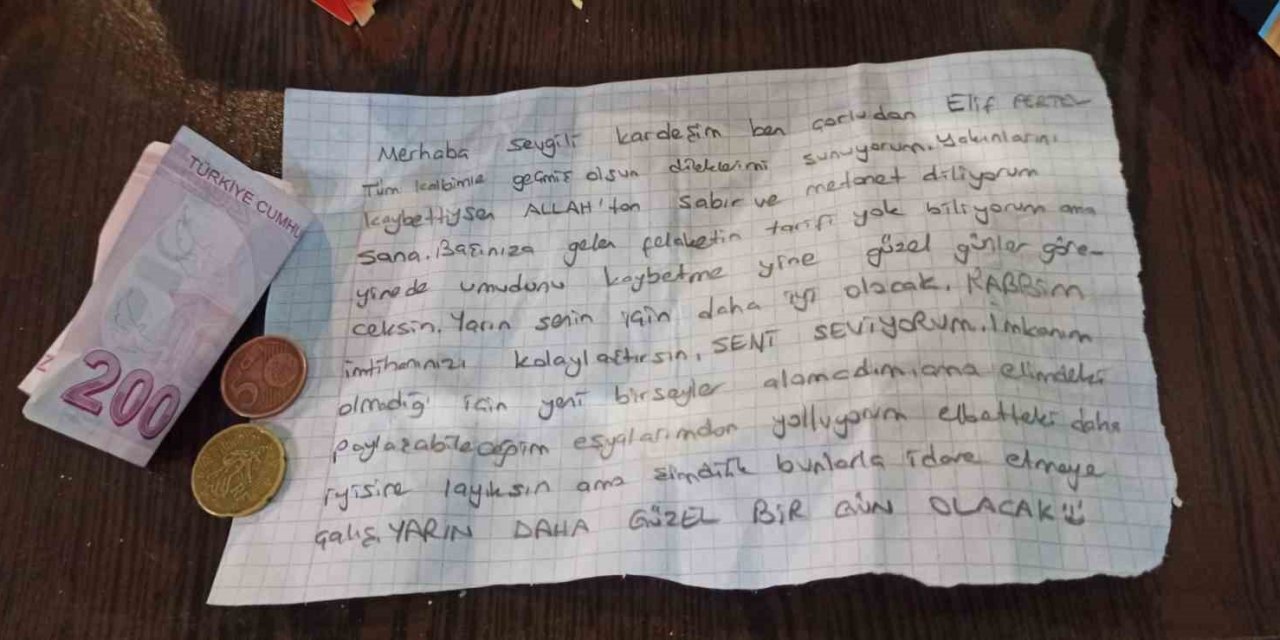 Merhaba sevgili kardeşim ben çorludan Elif PERTEL
Tüm kalbimle geçmiş olsun dileklerimi sunuyorum. Yakınlarını
kaybettiysen ALLAH'tan sabır ve metanet diliyorum
sana. Başınıza gelen felaketin tarifi yok biliyorum ama
yinede umudunu kaybetme yine güzel günler göre-
ceksin. Yarın senin için daha iyi olacak. RABBİM
imtihanınızı kolaylaştırsın. SENİ SEVİYORUM. İmkanım
olmadığı için yeni birşeyler alamadım ama elimdeki
paylaşabileceğim eşyalarımdan yolluyorum elbetteki daha
iyisine layıksın ama şimdilik bunlarla idare etmeye
çalış. YARIN DAHA GÜZEL BİR GÜN OLACAK
TÜRKİYE CUMHU
200
5